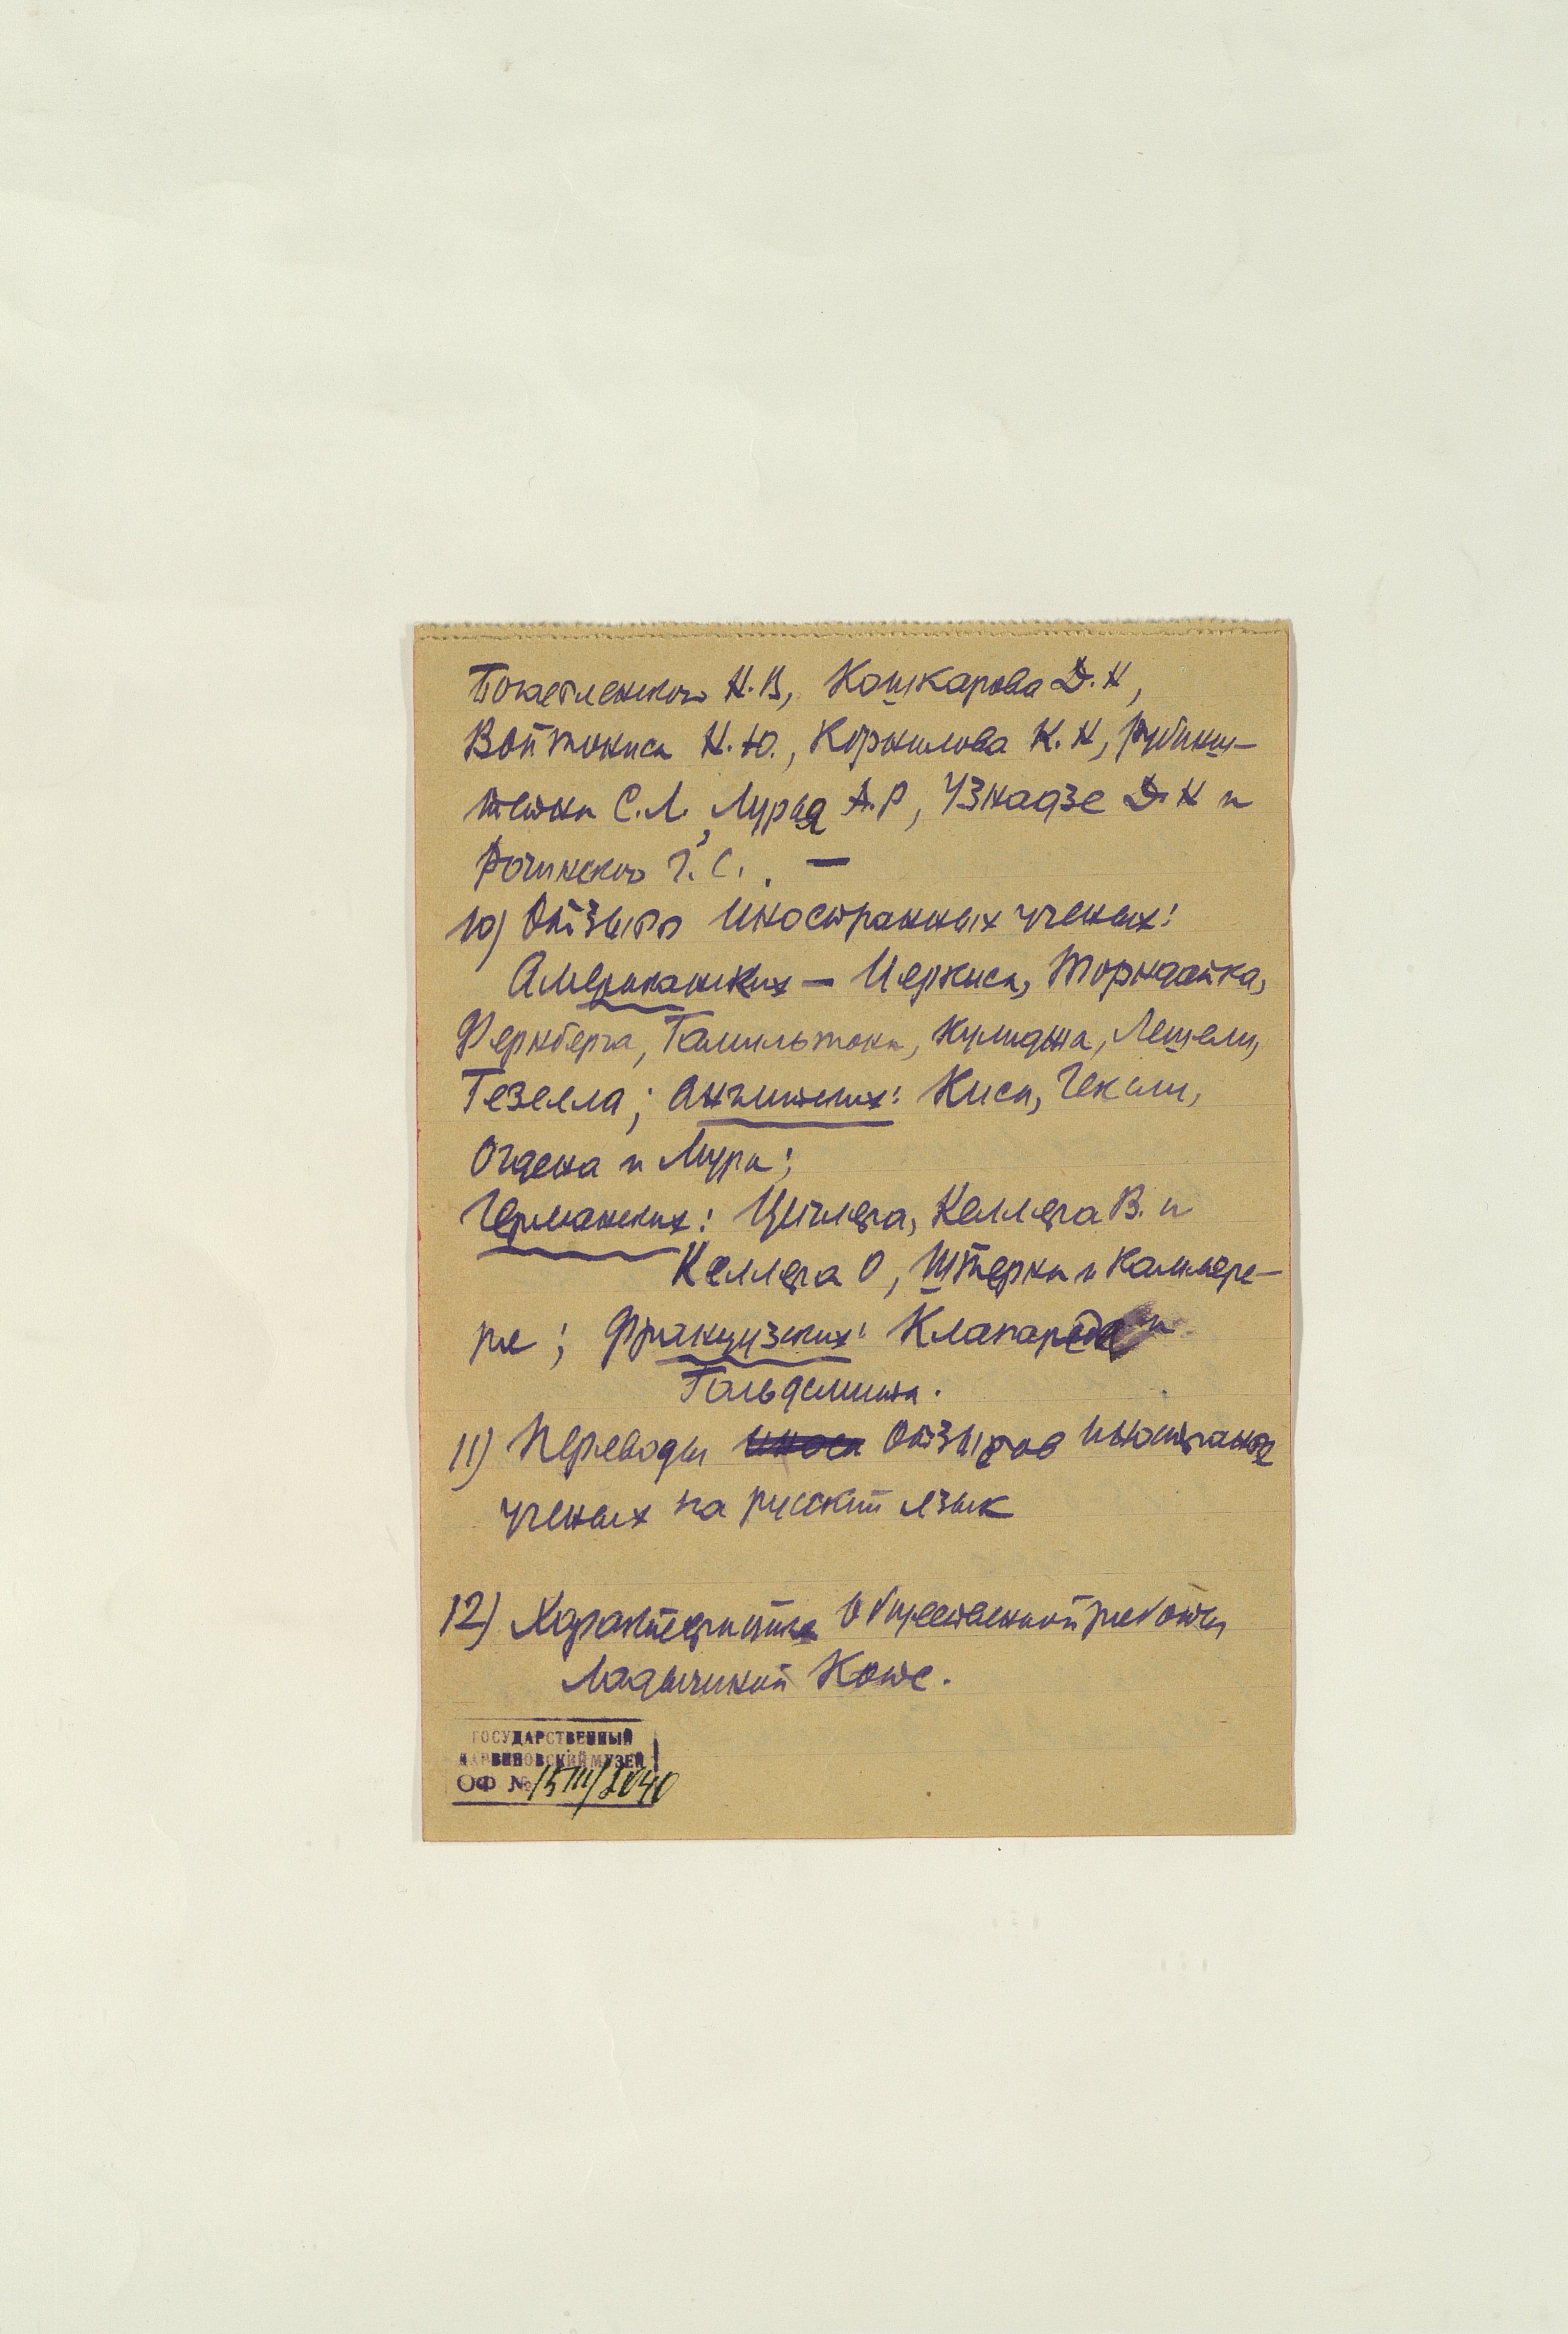 Богословского Н.В, Кошкарова Д.Н,
Войтониса Н.Ю., Корнилова К.Н, Рубинш-
тейна С.Л., Лурия А.Р, Узнадзе Д.Н и
Рогинского Г.С. —
10) Отзывы Иностранных ученых:
Американских — Иеркиса, Торндайка,
Фернберга, Гамильтона, Кулиджа, Лешели,
Гезелла; Английских: Киса, Гексли,
Огдена и Мура;
Германских: Циглера, Келлера В. и
Келлера О, Штерна и Каммере-
ра; Французских: Клапареда и
Гольдсмит.
11) Переводы отзывов иностранных
ученых на русский язык
12) Характеристика Общественной работы
Ладыгиной Котс.
ГОСУДАРСТВЕННЫЙ
ДАРВИНОВСКИЙ МУЗЕЙ
ОФ № 15111/2040